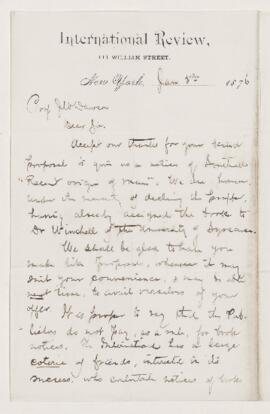 International Review,
111 WILLIAM STREET.
New York, Jan 8th 1876
Prof J W Dawson
Dear Sir,
Accept our thanks for your kind
proposal to give us a notice of Southall's
Recent origin of man". We are, however,
under the necessity of declining the proffer,
having already assigned the book to
Dr Winchell of the University of Syracuse.
We shall be glad to have you
make like proposals, whenever it may
suit your convenience, & may be able
next time, to avail ourselves of your
offer. It is proper to say that the Pub-
lishers do not pay, as a rule, for book
notices. The International has a large
coterie of friends, interested in its
success, who contribute notices of books